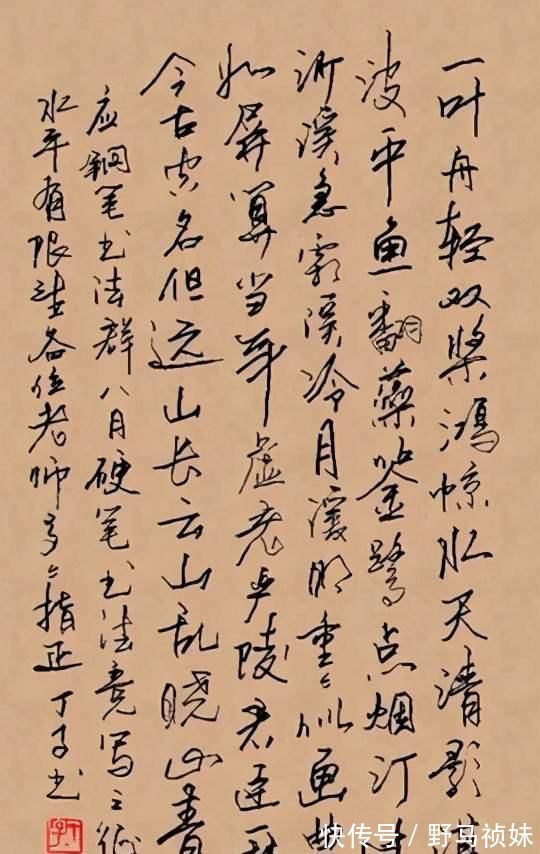 一叶舟轻双桨鸿惊水天清影
波平鱼翻藻鉴鹭点烟汀
沙溪急霜溪冷月溪明重々似画曲
如屏算当年虚老严陵君臣一
今古空名但远山长云山乱晓山青
应钢笔书法群八月硬笔书法竞写之征
水平有限请各位老师多々指正丁子书
快传号/野马祯妹